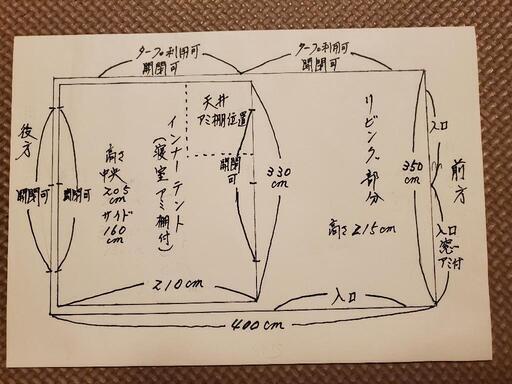 タープ利用可
開閉可
タープ利用可
開閉可
天井
アミ棚位置
後方
開閉可
開閉可
高さ
中央
205
cm
サイド
160
cm
インナーテント
(寝室アミ棚付)
開閉可
330
cm
リビング部分
高さ215cm
入口
350
cm
前方
入口
窓
アミ付
210cm
入口
400cm